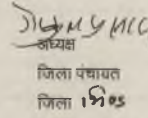 अध्यक्ष
जिला पंचायत
जिला भिण्ड